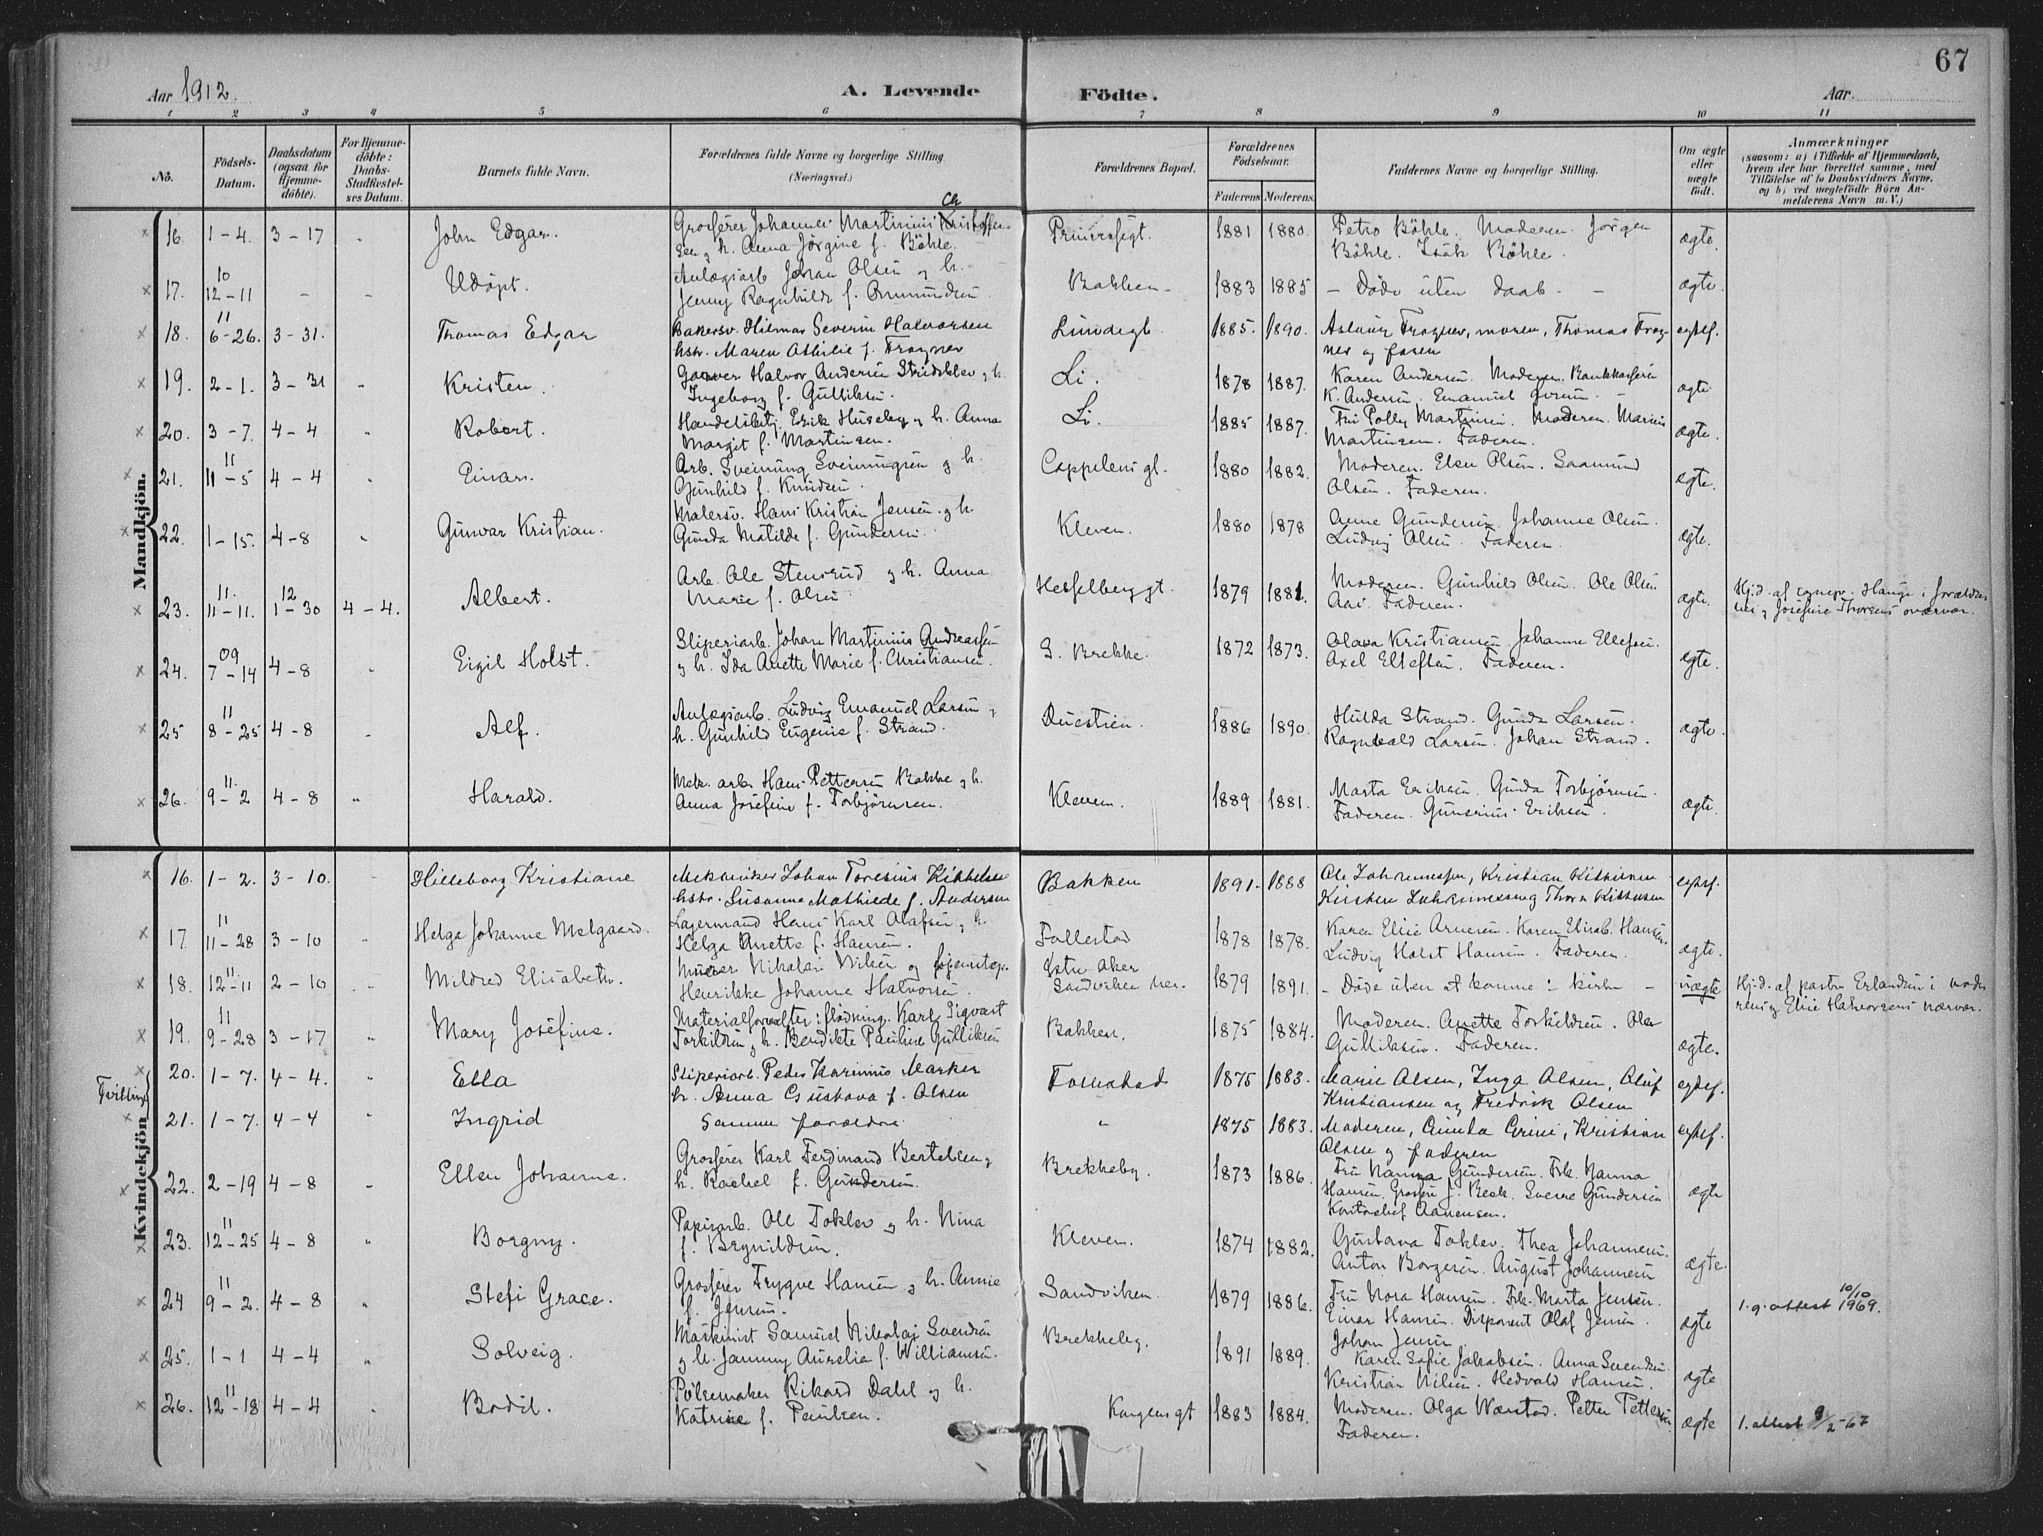 67
Aar 1912.
A. Levende
Födte.
Aar.
1 2 3 4 5 6 7 8 9 10 11
No.
Födsels-Datum.
Daabsdatum (ogsaa for Hjemme-döbte).
For Hjemme-döbte: Daabs-Stadfæstel-ses Datum.
Barnets fulde Navn.
Forældrenes fulde Navne og borgerlige Stilling
(Næringsvei.)
Forældrenes Bopæl.
Forældrenes Födselsaar.
Faderens Moderens
Faddernes Navne og borgerlige Stilling.
Om ægte eller uægte födt.
Anmærkninger
(saasom: a) i Tilfælde af Hjemmedaab,
hvem der har forrettet samme, med
Tilföielse af to Daabsvidners Navne,
og b) ved uægtefödte Börn An-
melderens Navn m. V.)
Mandkjön.
16. 1-4. 3-17 John Edgar. Grosserer Johannes Martinius Kristoffer- Ch
sen og h. Anna Jörgine f. Böhle. 1881 1880. Petro Böhle. Moderen. Jörgen
Böhle. Isak Böhle. ægte.
17. 10/12-11 - - Udöpt. Anlægsarb. Johan Olsen og h.
Jenny Ragnhild f. Bakken- 1883 1885 - Döde uten daab. - ægte.
18. 11/6-26. 3-31. Thomas Edgar Bakersv. Hilmar Severin Halvorsen
hstr. Maren Othilie f. Frogner Lundegt. 1885. 1890. Frogner, moren, Thomas Frog-
ner og faren
19. 2-1. 3-31 Kristen. Halvor Andersen Stridsklev og h.
Ingeborg f. Gulliksen. Li. 1878 1887. Karen Andersen. Moderen. Bankkasserer
K. Andersen. Emanuel ægte
20. 3-7. 4-4 Robert. Erik Huseby og h. Anna
Margit f. Martinsen. Li. 1885 1887. Fru Polly Martinsen. Moderen. Marius
Martinsen. Faderen. ægte.
21. 11/11-5 4-4 Einar. Arb. Sveinung Sveinungsen og h.
Gunhild f. Knudsen. Cappelens gt. 1880 1882. Moderen. Else Olsen. Saamund
Olsen. Faderen. ægte.
22. 1-15. 4-8 Gunvar Kristian. Malersv. Hans Kristian Jensen og h.
Gunda Matilde f. Gundersen. Kleven. 1880 1878 Anne Gundersen. Johanne Olsen.
Ludvig Olsen. Faderen. ægte.
23. 11/11-11. 12/1-30 4-4. Albert. Arb. Ole Stensrud og h. Anna
Marie f. Olsen Hesselberg gt. 1879 1881. Moderen. Gunhild Olsen. Ole Olsen
Aas. Faderen. ægte. Hj.d. af Hauge i forældre-
nes og Josefine Thorsens nærvær.
24. 09/7-14 4-8 Eigil Holst. Sliperiarb. Johan Martinius Andreassen
og h. Ida Anette Marie f. Christiansen. G. Brekke. 1872 1873. Olava Kristiansen. Johanne Ellefsen.
Axel Ellefsen. Faderen. ægte.
25 11/8-25 4-8 Alf. Anlægsarb. Ludvig Emanuel Larsen og
h. Gunhild Eugenie f. Strand. Duestien. 1886 1890. Hulda Strand. Gunda Larsen.
Ragnvald Larsen. Johan Strand. ægte.
26. 11/9-2 4-8 Harald. Mek. arb. Hans Pettersen Bakke og h.
Anna Josefine f. Torbjörnsen. Kleven. 1889 1881. Marta Eriksen. Gunda Torbjörnsen.
Faderen. Gunerius Eriksen. ægte.
Kvindekjön
16. 1-2. 3-10. Hilleborg Kristiane Mekaniker Johan Toresius Kittelsen
hstr. Susanne Mathilde f. Andersen Bakken 1891. 1888 Ole Johannessen, Kristian Kittelsen
Kirsten Johannessen og Thora Kittelsen
17. 11/11-28 3-10 Helga Johanne Melgaard. Lagermand Hans Karl Olafsen og h.
Helga Anette f. Hansen. Follestad 1878 1878. Karen Elise Arnesen. Karen Elisab. Hansen.
Ludvig Holst Hansen. Faderen. ægte.
18. 11/12-11 2-10 Mildred Elisabeth. Murer Nikolai Nilsen og
Henrikke Johanne Halvorsen. Östre Aker
Sandviken 1879 1891. - Döde uten at komme i kirke - uægte Hj.d. af pastor Erlandsen i mode-
rens og Elise Halvorsens nærvær.
19. 11/9-28 3-17 Mary Josefine. Materialforvalter Karl Sigvart
Torkildsen og h. Benedikte Pauline Gulliksen Bakken. 1875 1884. Moderen. Anette Torkildsen. Olav
Gulliksen. Faderen. ægte.
Tvilling
20. 1-7. 4-4. Ella Sliperiarb. Peder Karinius Marker
h. Anna Gustava f. Olsen Follestad 1875 1883. Marie Olsen, Inga Olsen, Oluf
Kristiansen og Fredrik Olsen
21. 1-7. 4-4 Ingrid Samme forældre " 1875 1883. Moderen, Kristian
Olsen og faderen
22. 2-19 4-8 Ellen Johanne. Grosserer Karl Ferdinand Bertelsen og
h. Rachel f. Gundersen. Brekkeby. 1873 1886. Fru Nanna Gundersen. Frk. Nanna
Hansen. Grosserer J. Beck. Sverre Gundersen
Kontorchef Aanensen. ægte
23. 11/12-25 4-8 Borgny. Papirarb. Ole Toklev og h. Nina
f. Brynildsen. Kleven. 1874 1882. Gustava Toklev. Thea Johannesen.
Anton Borgersen. August Johannesen ægte.
24 11/9-2. 4-8 Stefi Grace. Grosserer Trygve Hansen og h. Annie
f. Jensen. Sandviken. 1879 1886. Fru Nora Hansen. Frk. Marta Jensen.
Einar Hansen. Disponent Olaf Jensen.
Johan Jensen ægte 1.g. attest 10/10 1969.
25. 1-1 4-4 Solveig. Maskinist Samuel Nikolai Svendsen
og h. Jammy Aurelie f. Williamsen. Brekkeby. 1891 1889. Karen Sofie Jakobsen. Anna Svendsen.
Kristian Nilsen. Hedvald Hansen. ægte
26. 11/12-18 4-4 Bodil. Pölsemaker Rikard Dahl og h.
Katrine f. Paulsen. Kongens gt 1883 1884. Moderen. Olga Wærstad. Petter Pettersen.
Faderen. ægte 1. attest 9/2-67